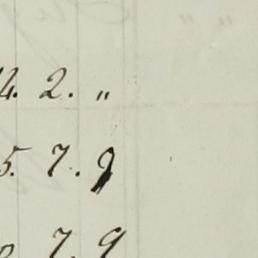 4. 2. "
5. 7. 9
7. 9